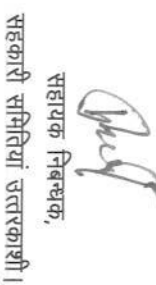 सहायक निबन्धक,
सहकारी समितियां उत्तरकाशी।